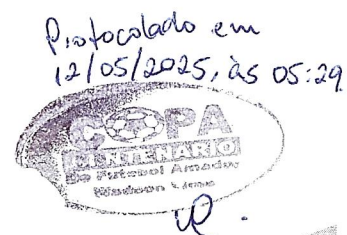 Protocolado em
12/05/2025, às 05:29
COPA
CENTENÁRIO
de Futebol Amador
Wadson Lima